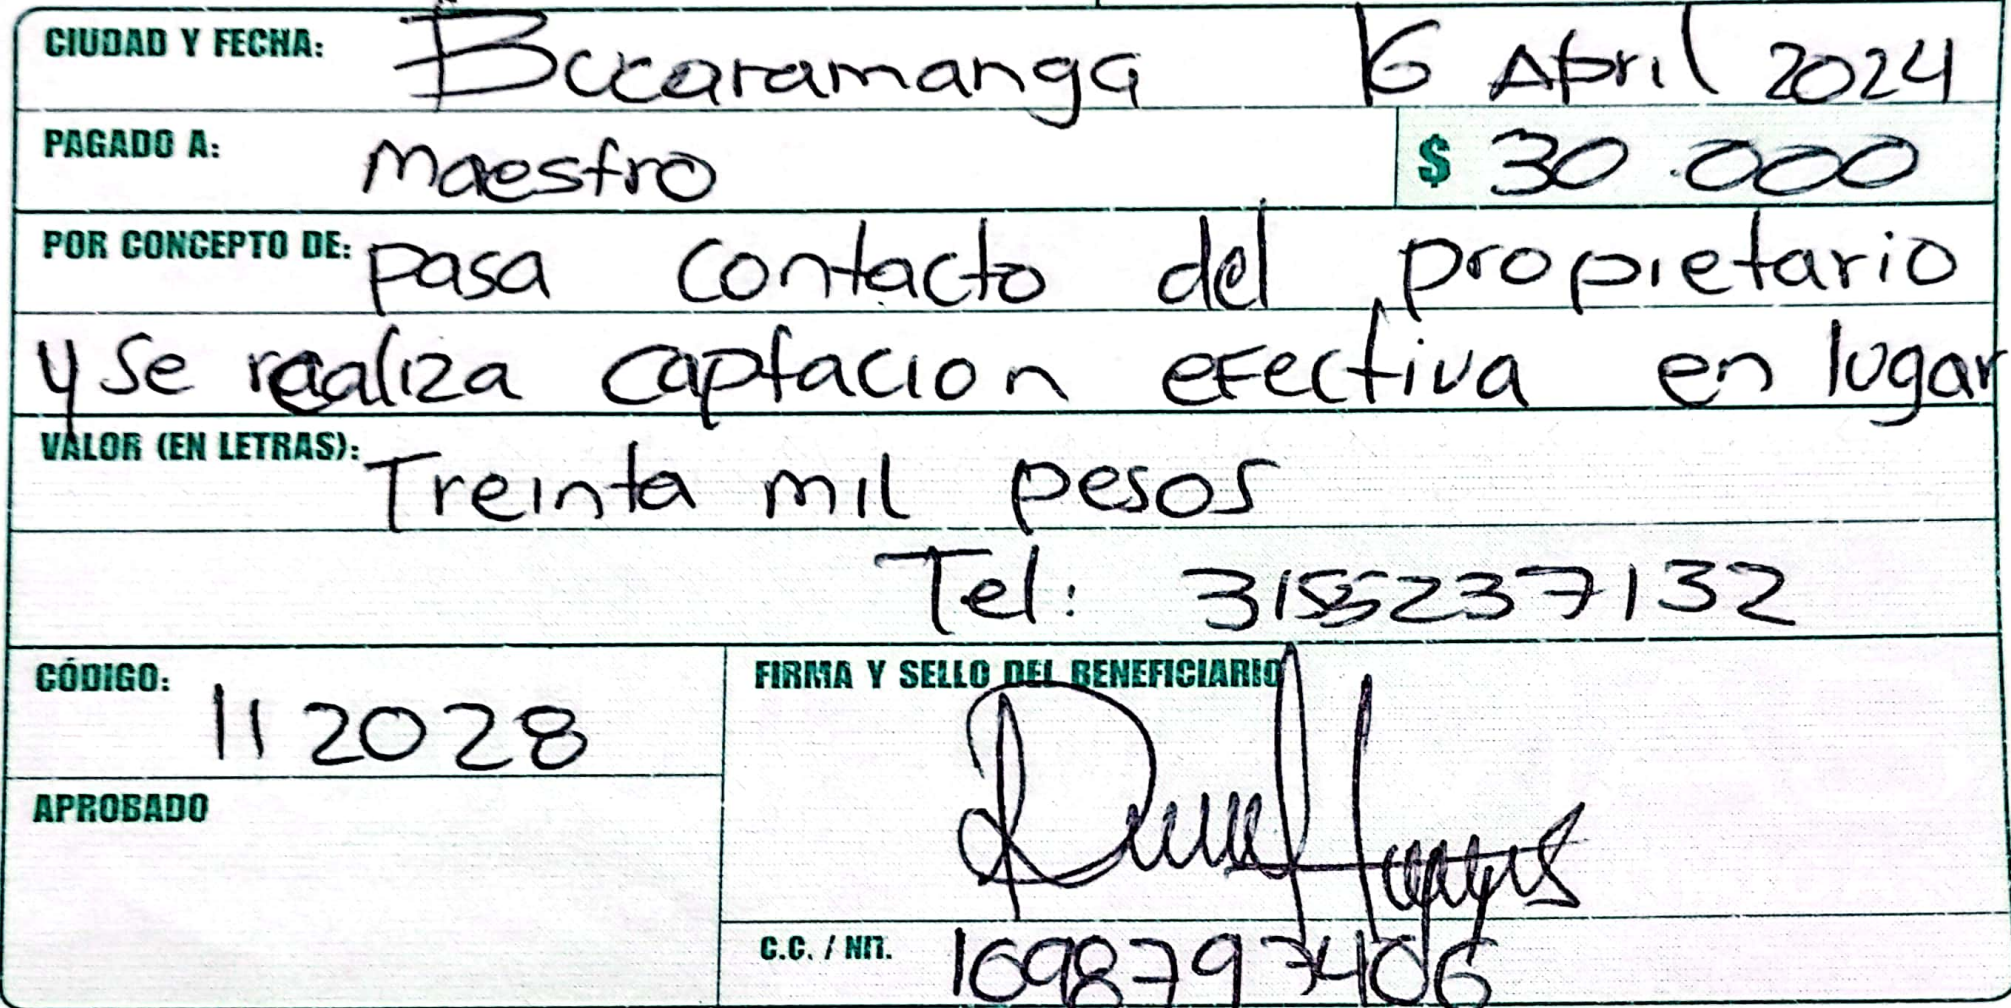 CIUDAD Y FECHA: Bucaramanga 16 Abril 2024
PAGADO A: Maestro $ 30.000
POR CONCEPTO DE: pasa contacto del propietario
y se realiza captacion efectiva en lugar
VALOR (EN LETRAS): Treinta mil pesos
Tel: 3155237132
CÓDIGO: 112028
FIRMA Y SELLO DEL BENEFICIARIO
APROBADO
C.C. / NIT. 1098797406